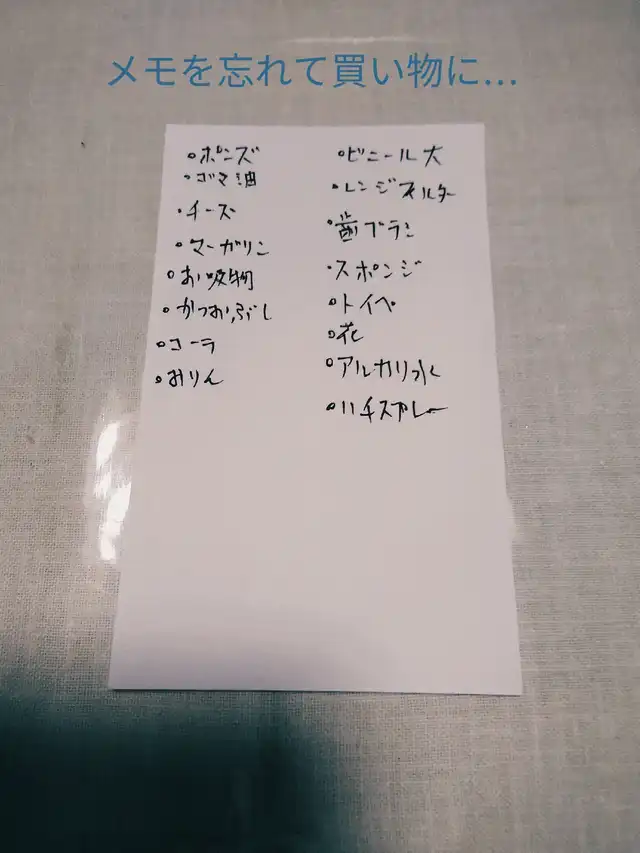 メモを忘れて買い物に…
ポンズ
ゴマ油
チーズ
マーガリン
お吸物
かつおぶし
コーラ
おりん
ビニール大
レンジフィルター
歯ブラシ
スポンジ
トイペ
花
アルカリ水
ハチスプレー